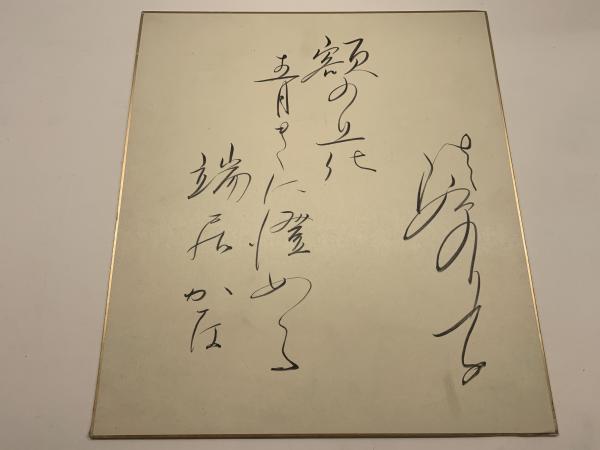 額の花
青さに澄める
端居かな